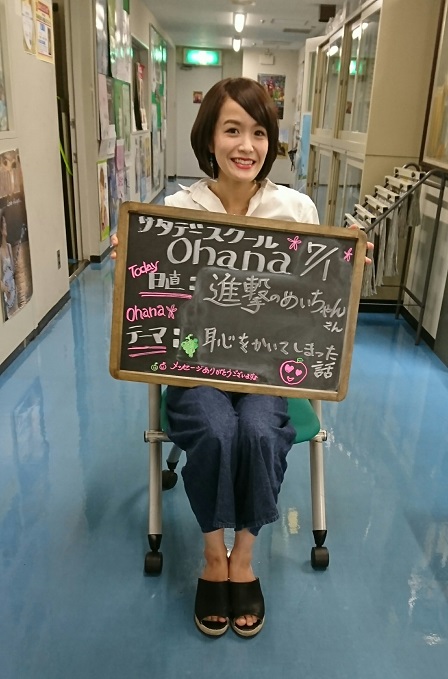 サタデースクール
Ohana 7/1
Today
日直：進撃のめいちゃん
さん
Ohana
テーマ：恥をかいてしまった
話
メッセージありがとうございます